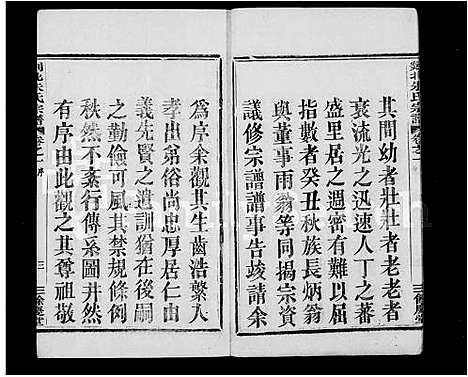 其間幼者壯壯者老老者
衰流光之迅速人丁之蕃
盛里居之遇密有難以屈
指數者癸丑秋族長炳翁
與董事雨翁等同捐宗資
議修宗譜譜事告竣請余
爲序余觀其生齒浩繁人
孝出弟俗尚忠厚居仁由
義先賢之遺訓猶在後嗣
之勤儉可風其禁規條例
秩然不紊行傳系圖井然
有序由此觀之其尊祖敬
朱氏宗譜
卷之一
序
三